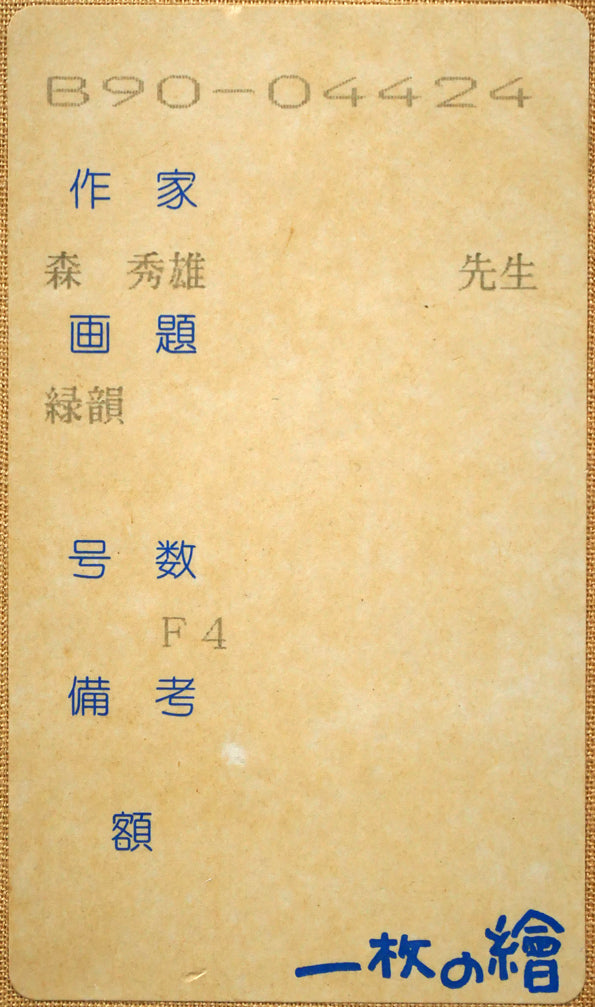 B90-04424
作家
森 秀雄 先生
画題
緑韻
号数
F4
備考
額
一枚の繪